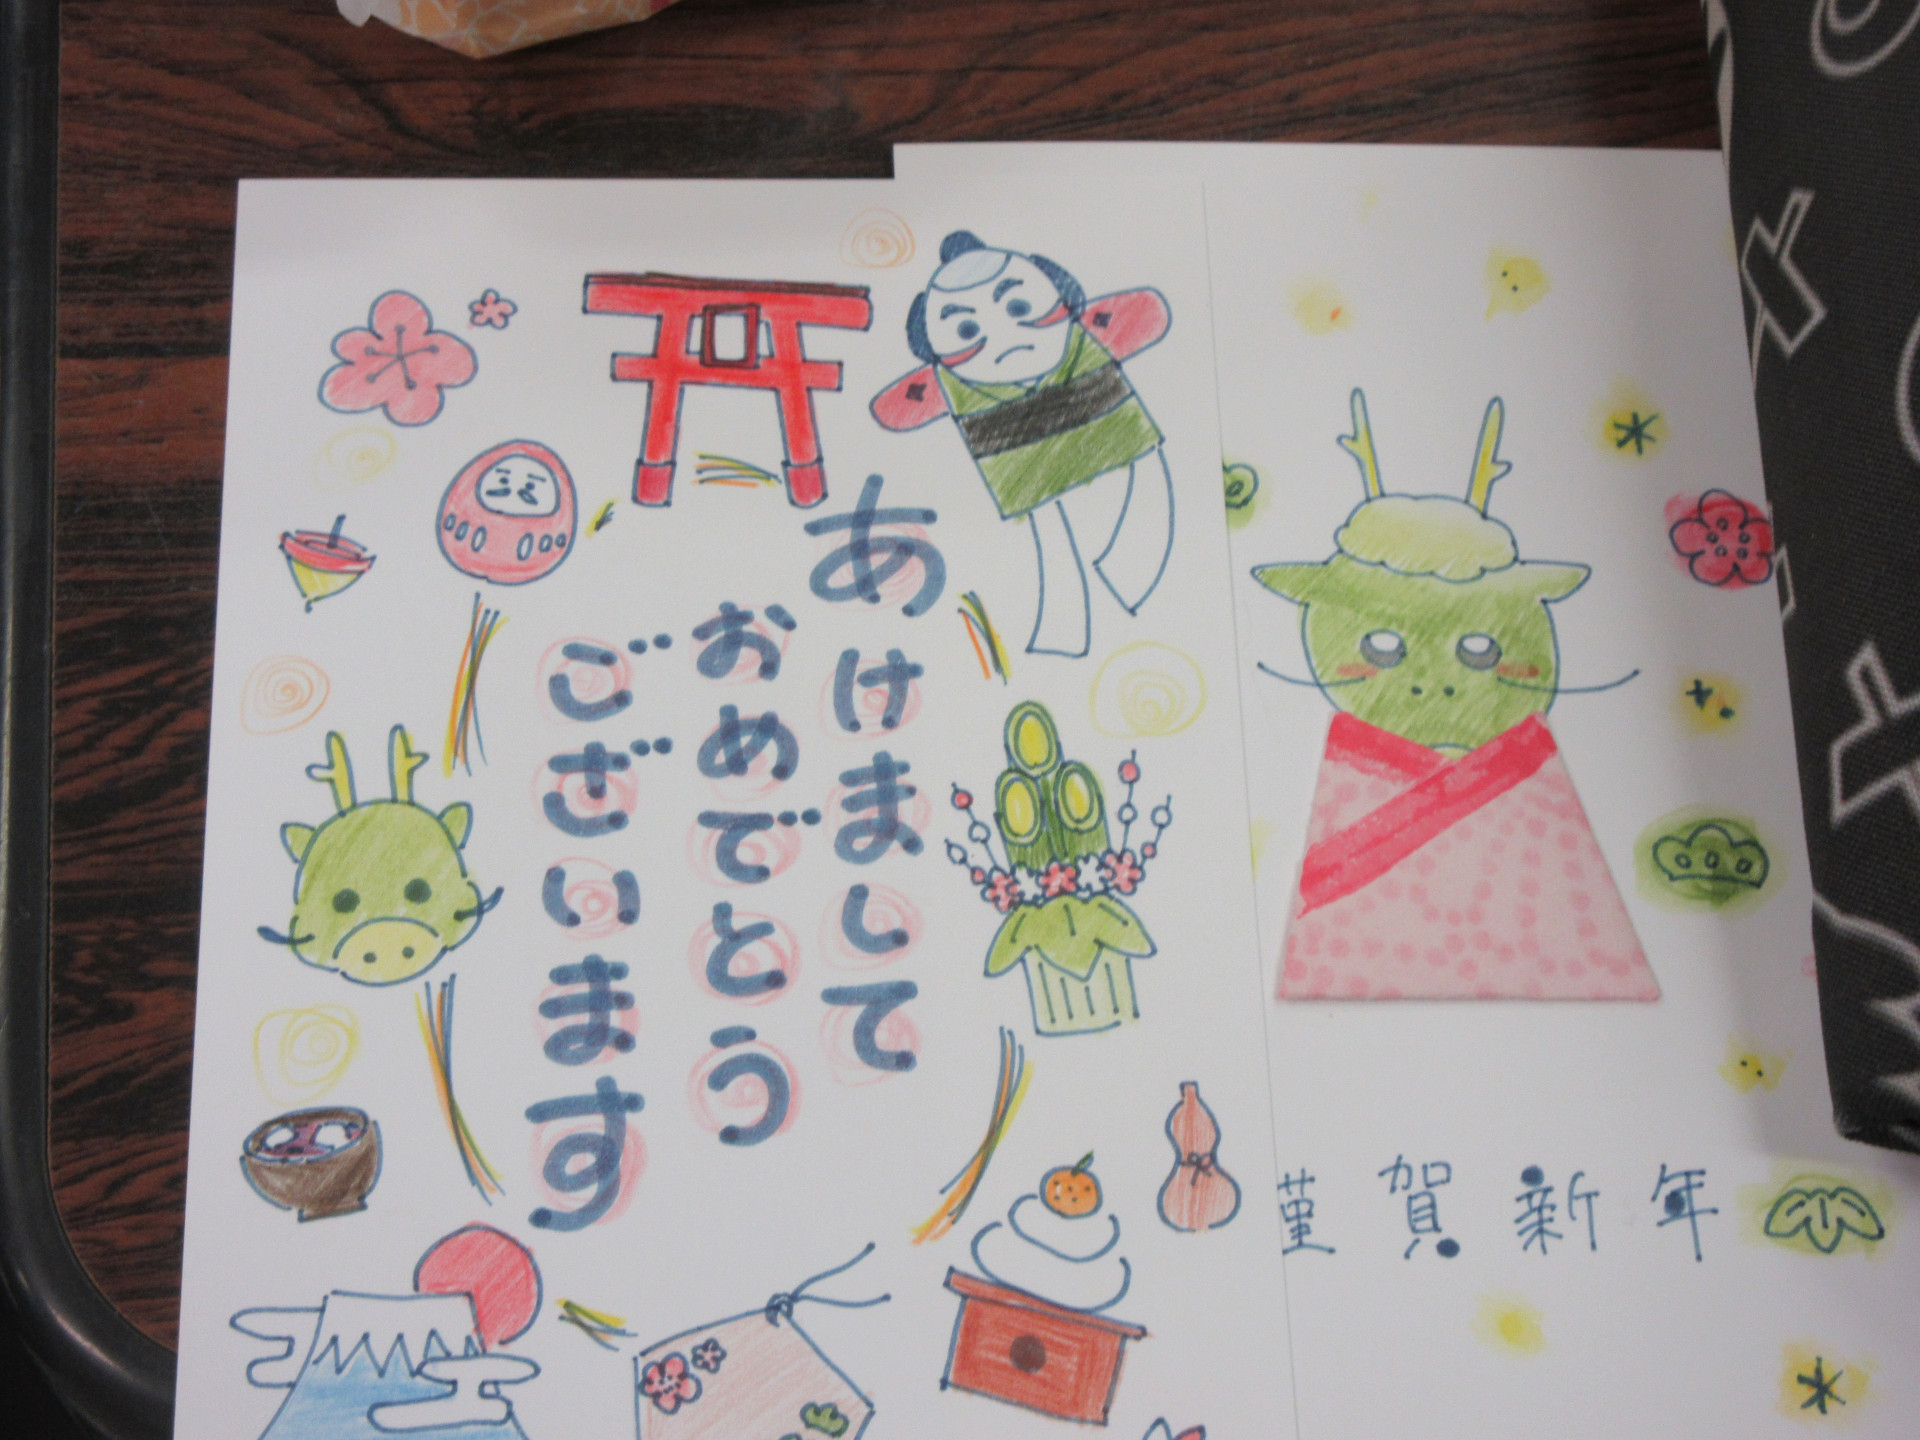 あけまして
おめでとう
ございます
謹賀新年